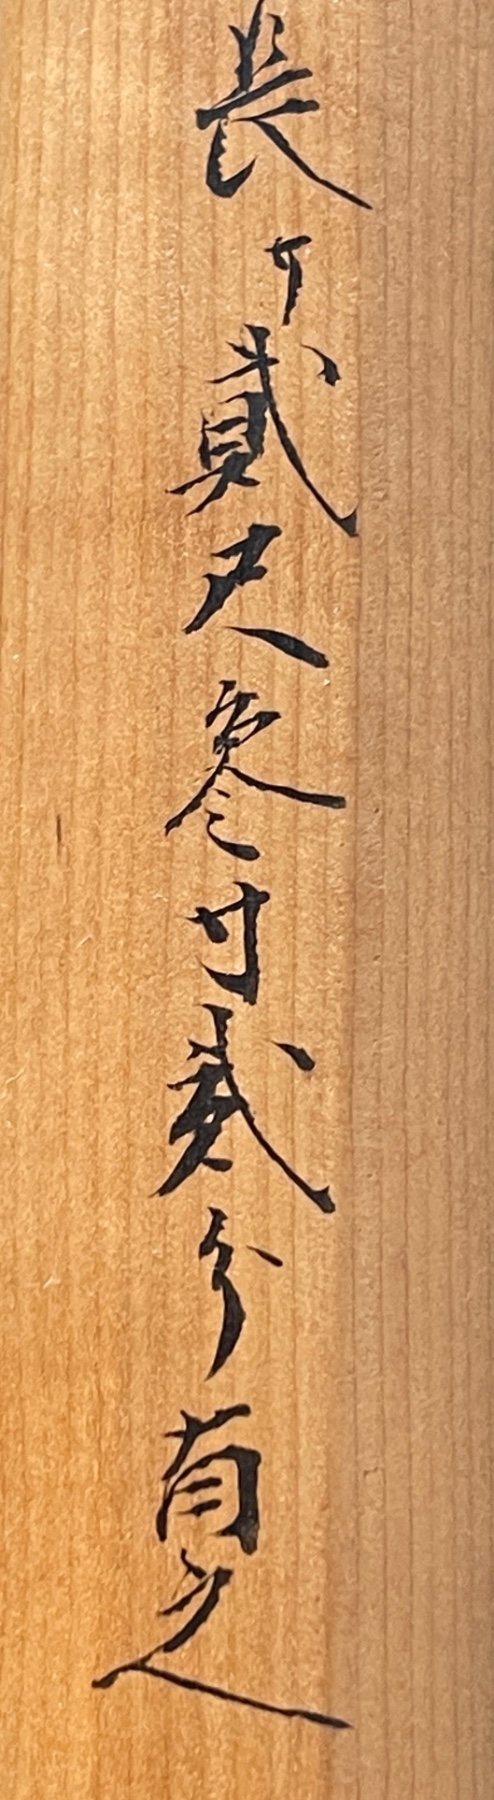 長サ貳尺参寸貳分有之